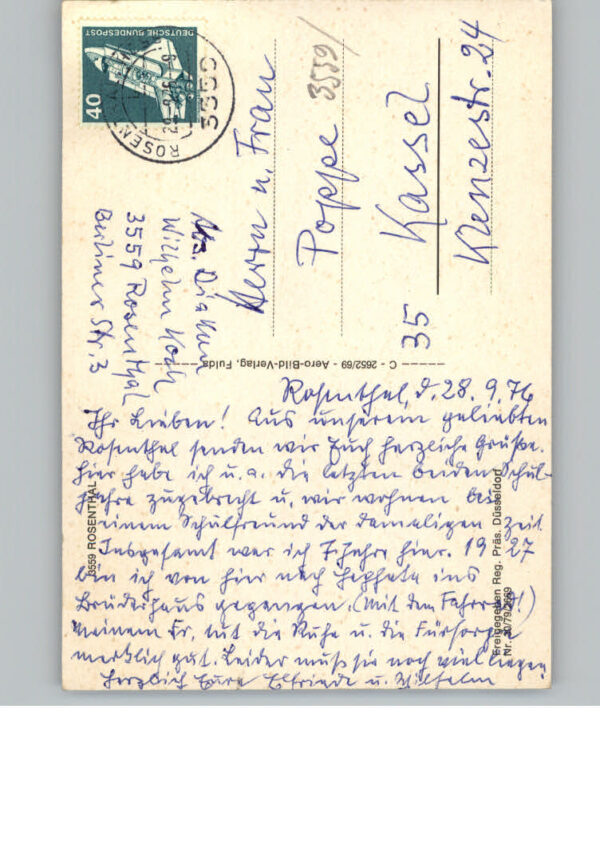 DEUTSCHE BUNDESPOST
40
ROSENTHAL
3559
3559
Herrn u. Frau
Poppe
35 Kassel
Krenzestr. 24
Abs. Diakon
Wilhelm Koch
3559 Rosenthal
Berliner Str. 3
C - 2652/69 - Aero-Bild-Verlag, Fulda
3559 ROSENTHAL
Freigegeben Reg. Präs. Düsseldorf
Rosenthal, d. 28.9.76
Ihr Lieben! Aus unserem geliebten
Rosenthal senden wir Euch herzliche Grüße.
Hier habe ich u. a. die letzten beiden Schul-
jahre zugebracht u. wir wohnen bei
einem Schulfreund der damaligen Zeit
Insgesamt war ich 7 Jahre hier. 1927
bin ich von hier nach Hephata ins
Brüderhaus gegangen (mit dem Fahrrad!)
Meiner Fr. tut die Ruhe u. die Fürsorge
merklich gut. Leider muß sie noch viel liegen
Herzlich Eure Elfriede u. Wilhelm